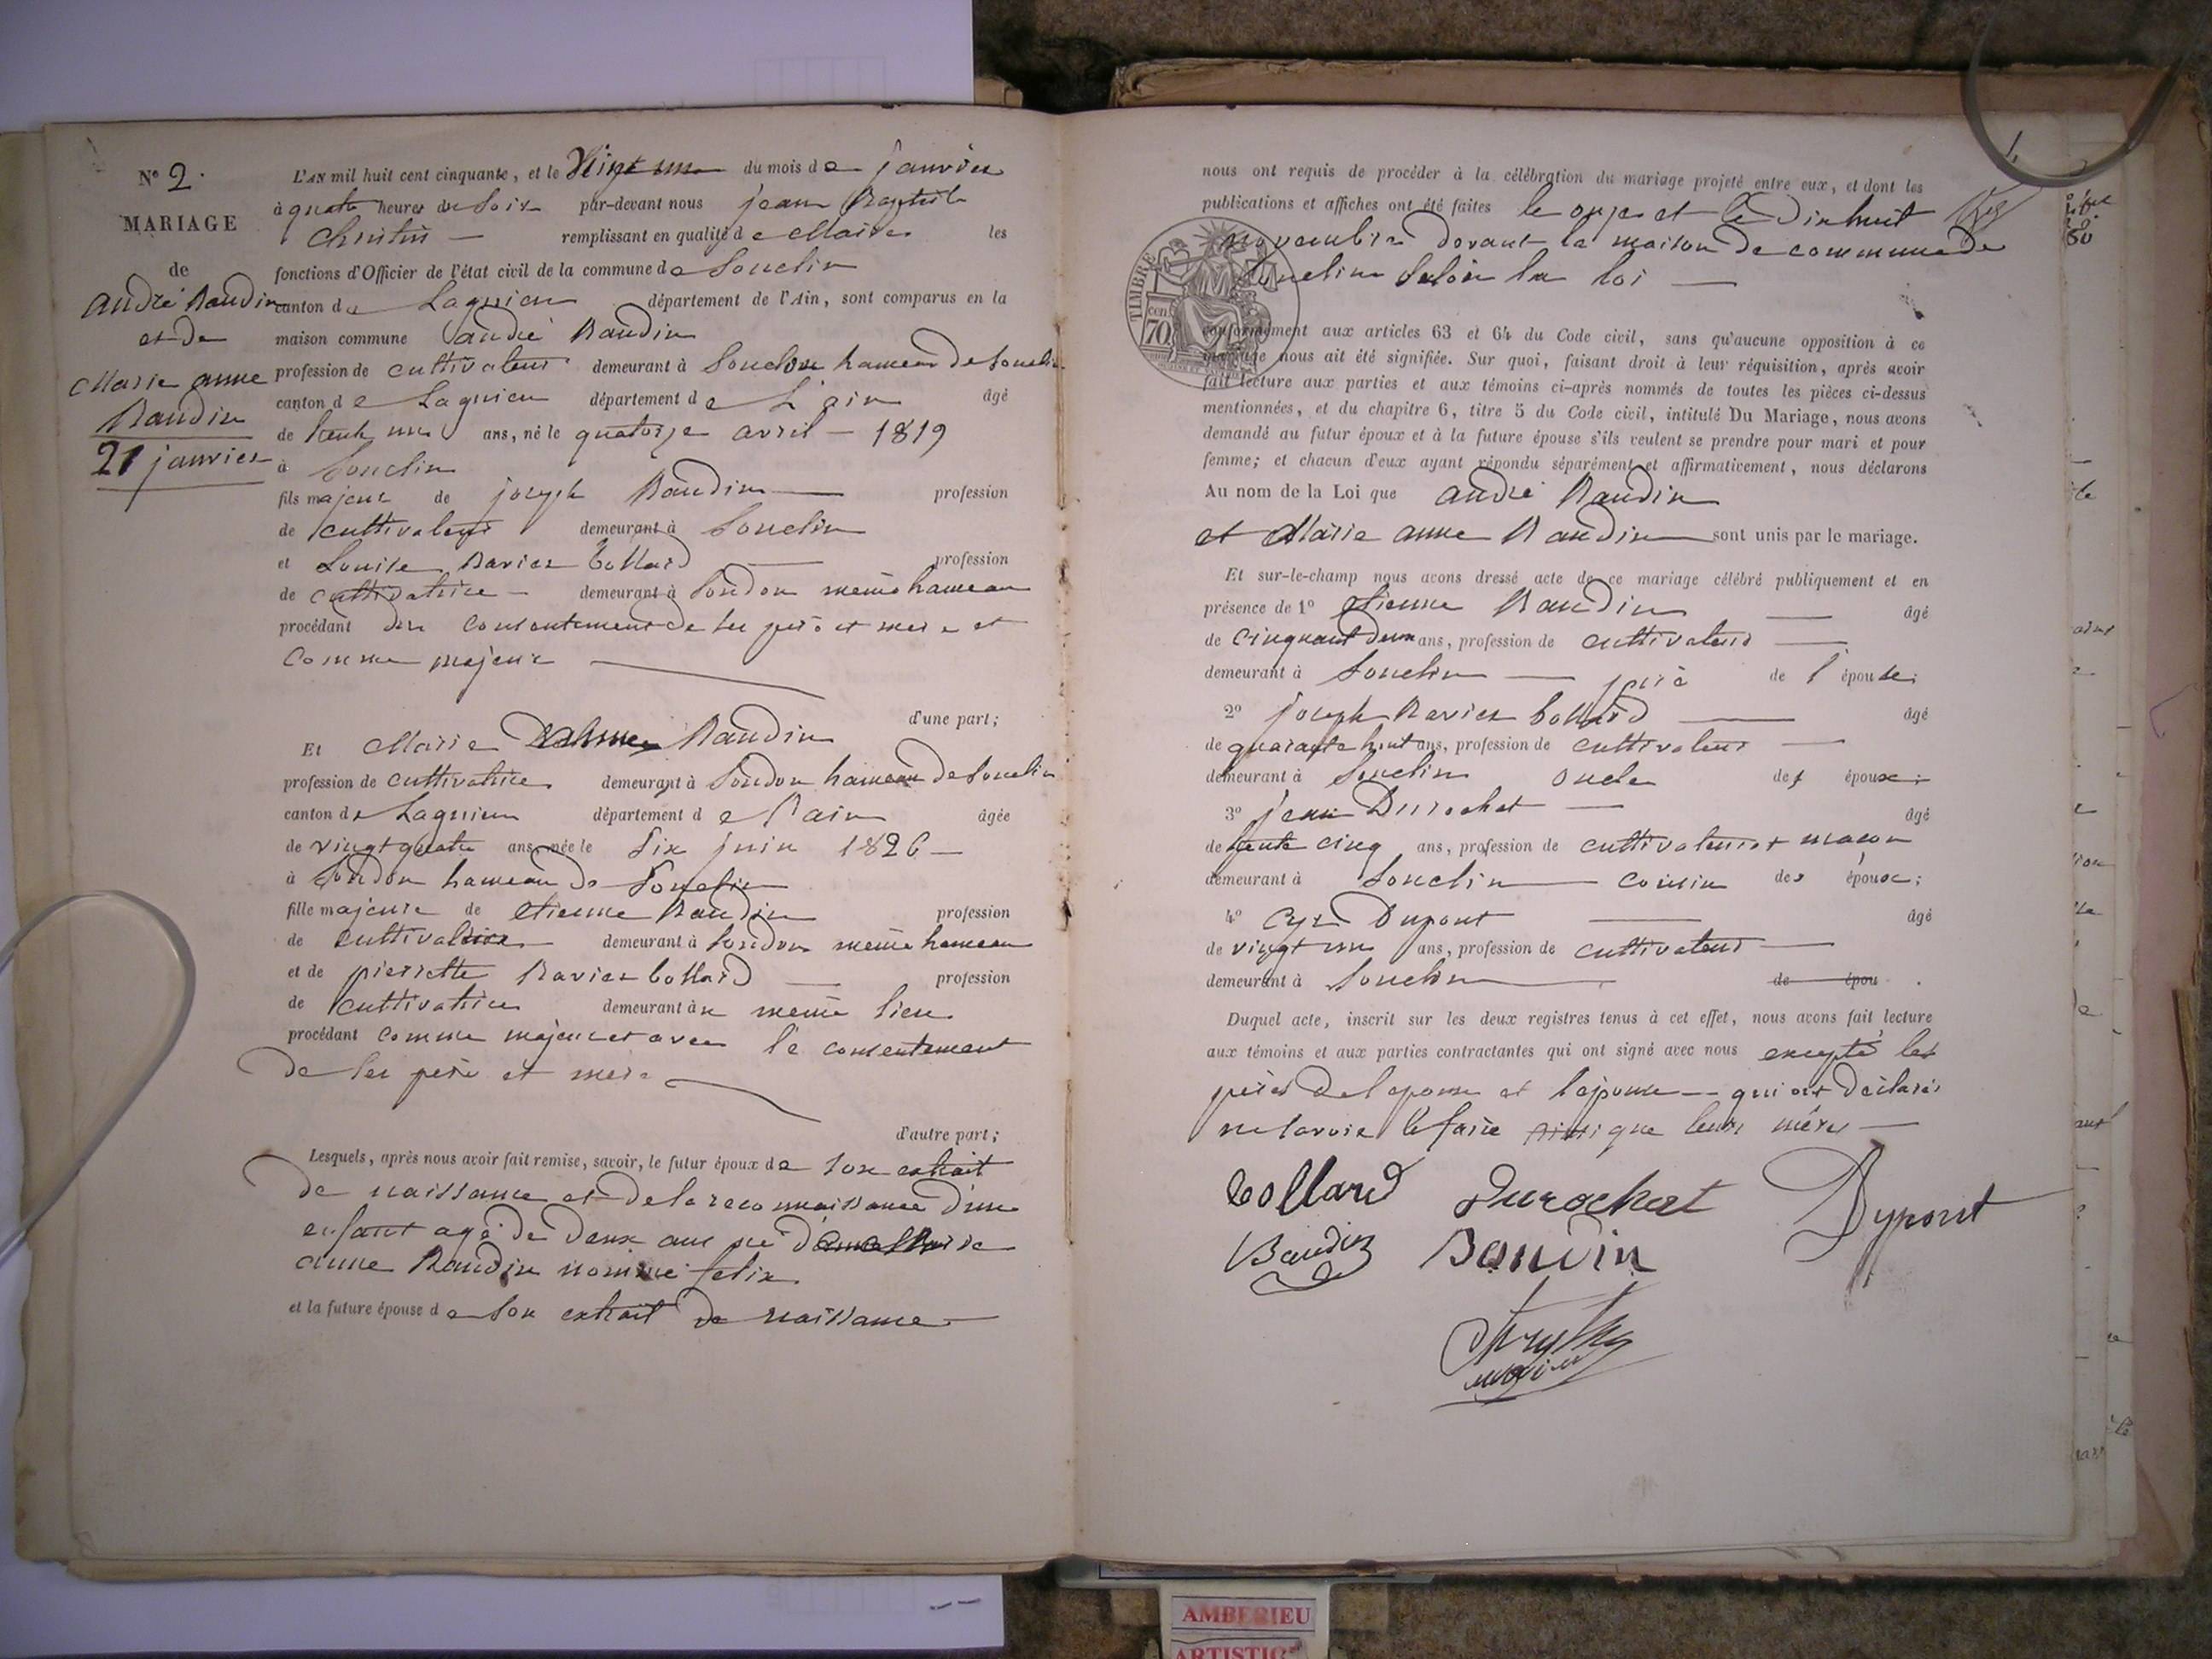 N° 2.
MARIAGE
de
andré Baudin
et de
Marie anne
Baudin
21 janvier
L'AN mil huit cent cinquante, et le Vingt un du mois de janvier
à quatre heures du soir par-devant nous jean Baptiste
Christin — remplissant en qualité de Maire les
fonctions d'Officier de l'état civil de la commune de Souclin
canton de Lagnieu département de l'Ain, sont comparus en la
maison commune andré Baudin
profession de cultivateur demeurant à hameau de Souclin
canton de Lagnieu département de L'ain âgé
de trente un ans, né le quatorze avril — 1819
à Souclin
fils majeur de joseph Baudin — profession
de cultivateur demeurant à Souclin
et Louise Ravier Collard — profession
de cultivatrice — demeurant à Soudon meme hameau
procédant du consentement de ses pere et mere et
comme majeur —
d'une part;
Et Marie anne Baudin
profession de cultivatrice demeurant à Soudon hameau de Souclin
canton de Lagnieu département de l'ain âgée
de vingt quatre ans, née le Six juin 1826 —
à Soudon hameau de Souclin
fille majeure de etienne Baudin profession
de demeurant à Soudon meme hameau
et de pierrette Ravier Collard — profession
de cultivatrice demeurant à meme lieu
procédant comme majeure et avec le consentement
de ses pere et mere
d'autre part;
Lesquels, après nous avoir fait remise, savoir, le futur époux de son extrait
de naissance et de la reconnaissance d'un
enfant agé de deux ans né de Marie
anne Baudin nommé felix
et la future épouse de son extrait de naissance —
nous ont requis de procéder à la célébration du mariage projeté entre eux, et dont les
publications et affiches ont été faites le onze et le dix huit
novembre devant la maison de commune de
Souclin Selon la loi —
TIMBRE
cen. 70
conformément aux articles 63 et 64 du Code civil, sans qu'aucune opposition à ce
mariage nous ait été signifiée. Sur quoi, faisant droit à leur réquisition, après avoir
fait lecture aux parties et aux témoins ci-après nommés de toutes les pièces ci-dessus
mentionnées, et du chapitre 6, titre 5 du Code civil, intitulé Du Mariage, nous avons
demandé au futur époux et à la future épouse s'ils veulent se prendre pour mari et pour
femme; et chacun d'eux ayant répondu séparément et affirmativement, nous déclarons
Au nom de la Loi que andré Baudin
et Marie anne Baudin sont unis par le mariage.
Et sur-le-champ nous avons dressé acte de ce mariage célébré publiquement et en
présence de 1° etienne Baudin — âgé
de cinquant deux ans, profession de cultivateur —
demeurant à Souclin — père de l'épouse;
2° joseph Ravier Collard — âgé
de quarante huit ans, profession de cultivateur —
demeurant à Souclin oncle des époux;
3° jean Durochat — âgé
de trente cinq ans, profession de cultivateur et macon
demeurant à Souclin — cousin des époux;
4° Cyr Dupont — âgé
de vingt un ans, profession de cultivateur —
demeurant à Souclin — de épou .
Duquel acte, inscrit sur les deux registres tenus à cet effet, nous avons fait lecture
aux témoins et aux parties contractantes qui ont signé avec nous excepté les
pères de l'epoux et l'épouse — qui ont déclarés
ne savoir le faire ainsi que leurs mères —
Collard Durochat Dupont
Baudin Baudin
maire
AMBERIEU
ARTISTIC